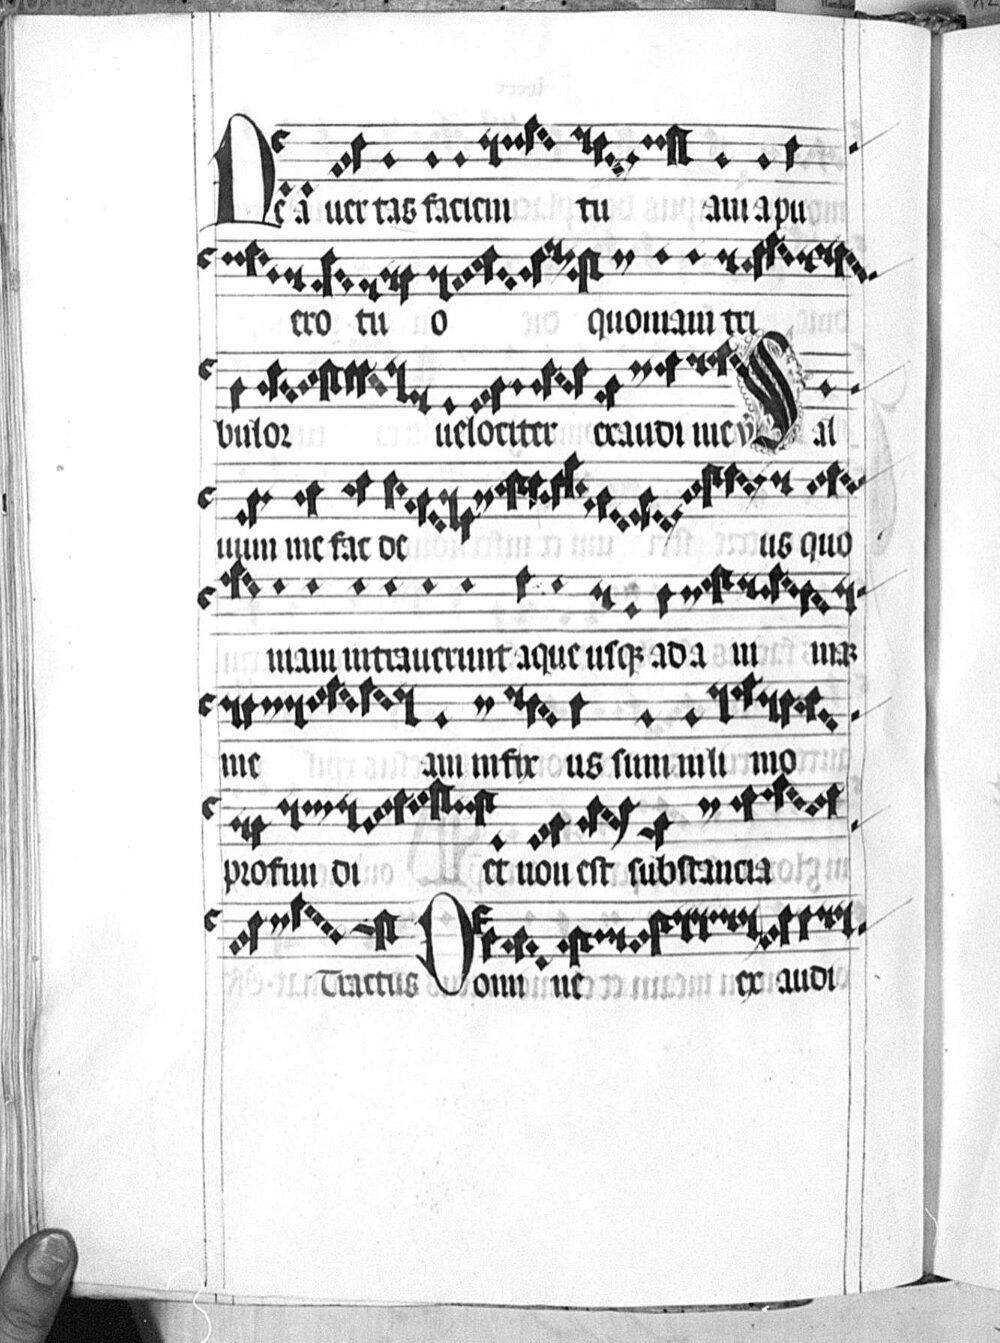 Ne a uer tas faciem tu am a pu
ero tu o quoniam tri
bulor uelociter exaudi me ℣ Sal
uum me fac de us quo
niam intrauerunt aque usqꝫ ad a ni maꝫ
me am infix us sum in li mo
profun di et non est substancia
Tractus Domi ne ex audi